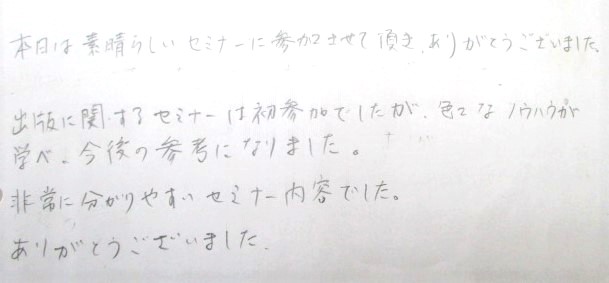 本日は素晴らしいセミナーに参加させて頂き、ありがとうございました。
出版に関するセミナーは初参加でしたが、色々なノウハウが
学べ、今後の参考になりました。
非常に分かりやすいセミナー内容でした。
ありがとうございました.